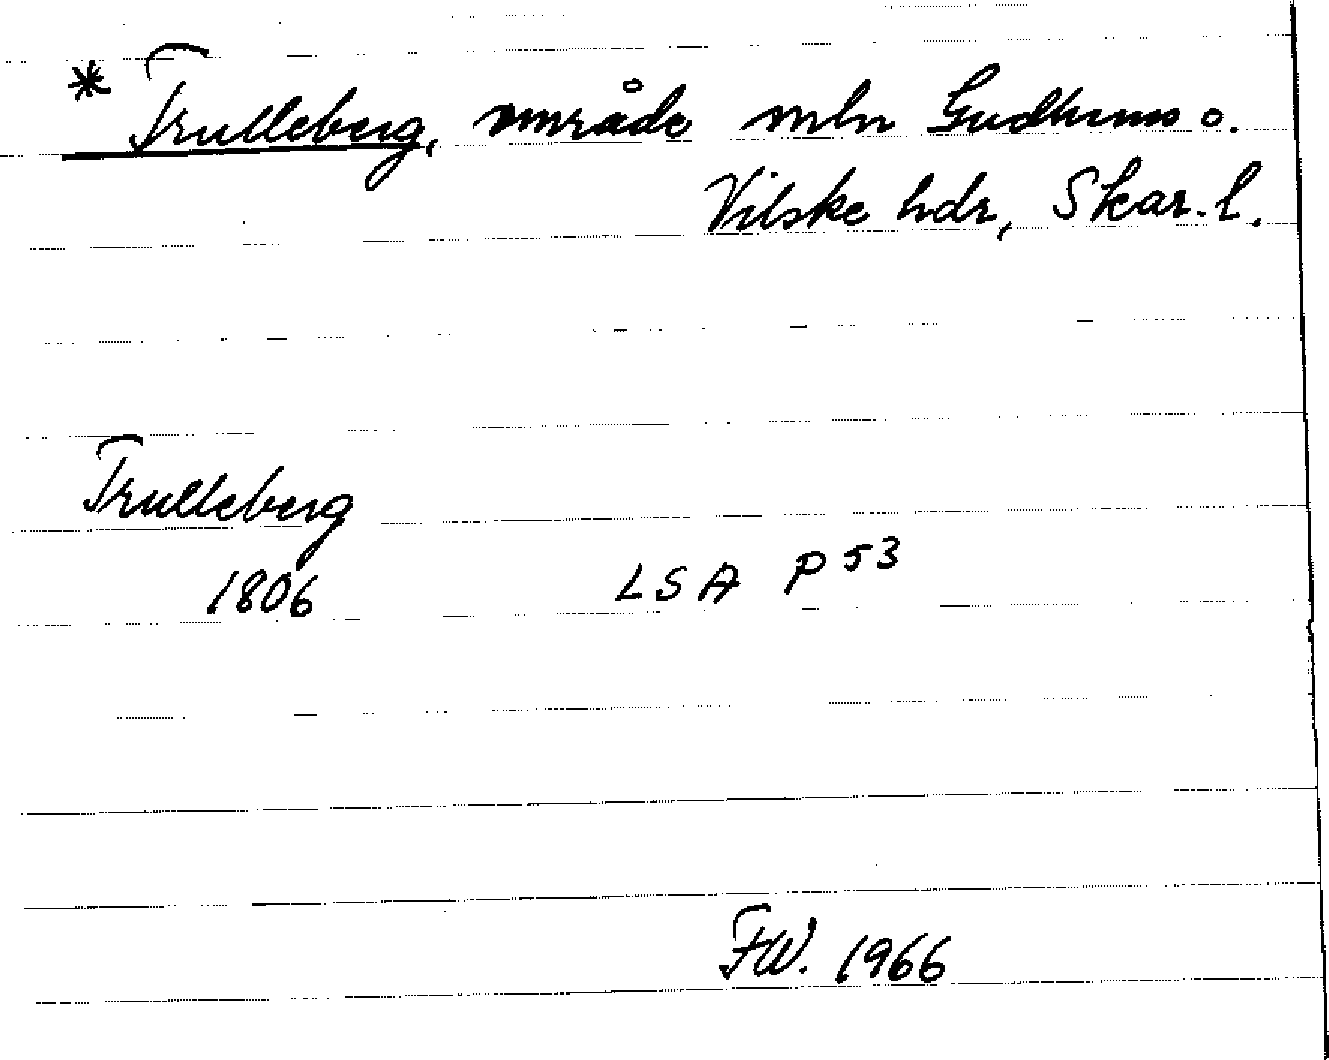 * Trulleberg, område mln Gudhems o.
Vilske hdr, Skar. l.
Trulleberg
1806 LSA P 53
FW. 1966